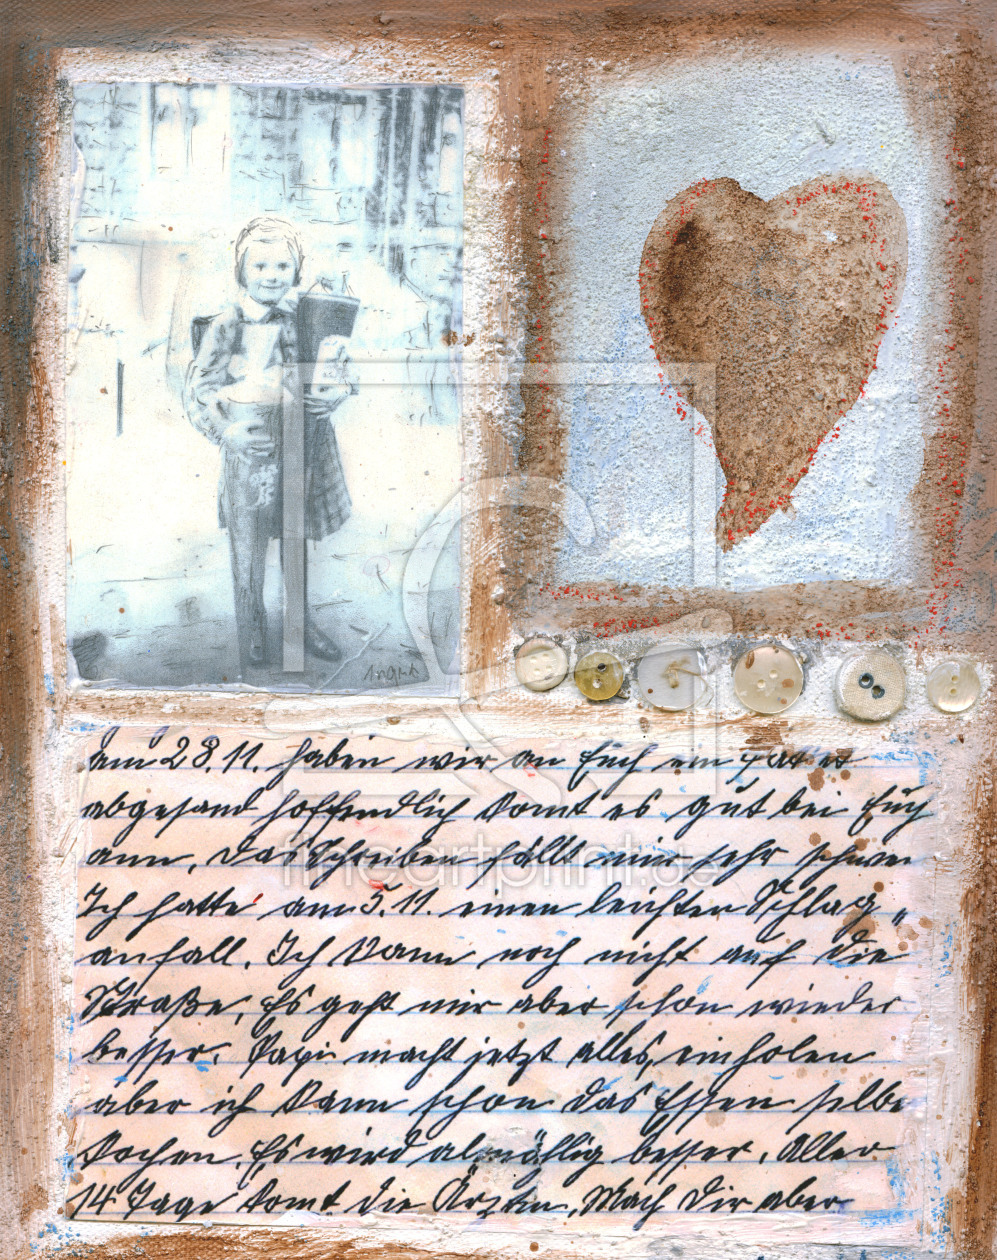 am 28.11. haben wir an Euch ein Paket
abgesand hoffendlich komt es gut bei Euch
ann, das Schreiben fällt mir sehr schwer
Ich hatte am 5.11. einen leichten Schlag„
anfall. Ich kann noch nicht auf die
Straße, Es geht mir aber schon wieder
besser. Papi macht jetzt alles, einholen
aber ich kann schon das Essen selbe
kochen. Es wird almählig besser. Aller
14 Tage komt die Ärztin, Mach Dir aber
fineartprint.de